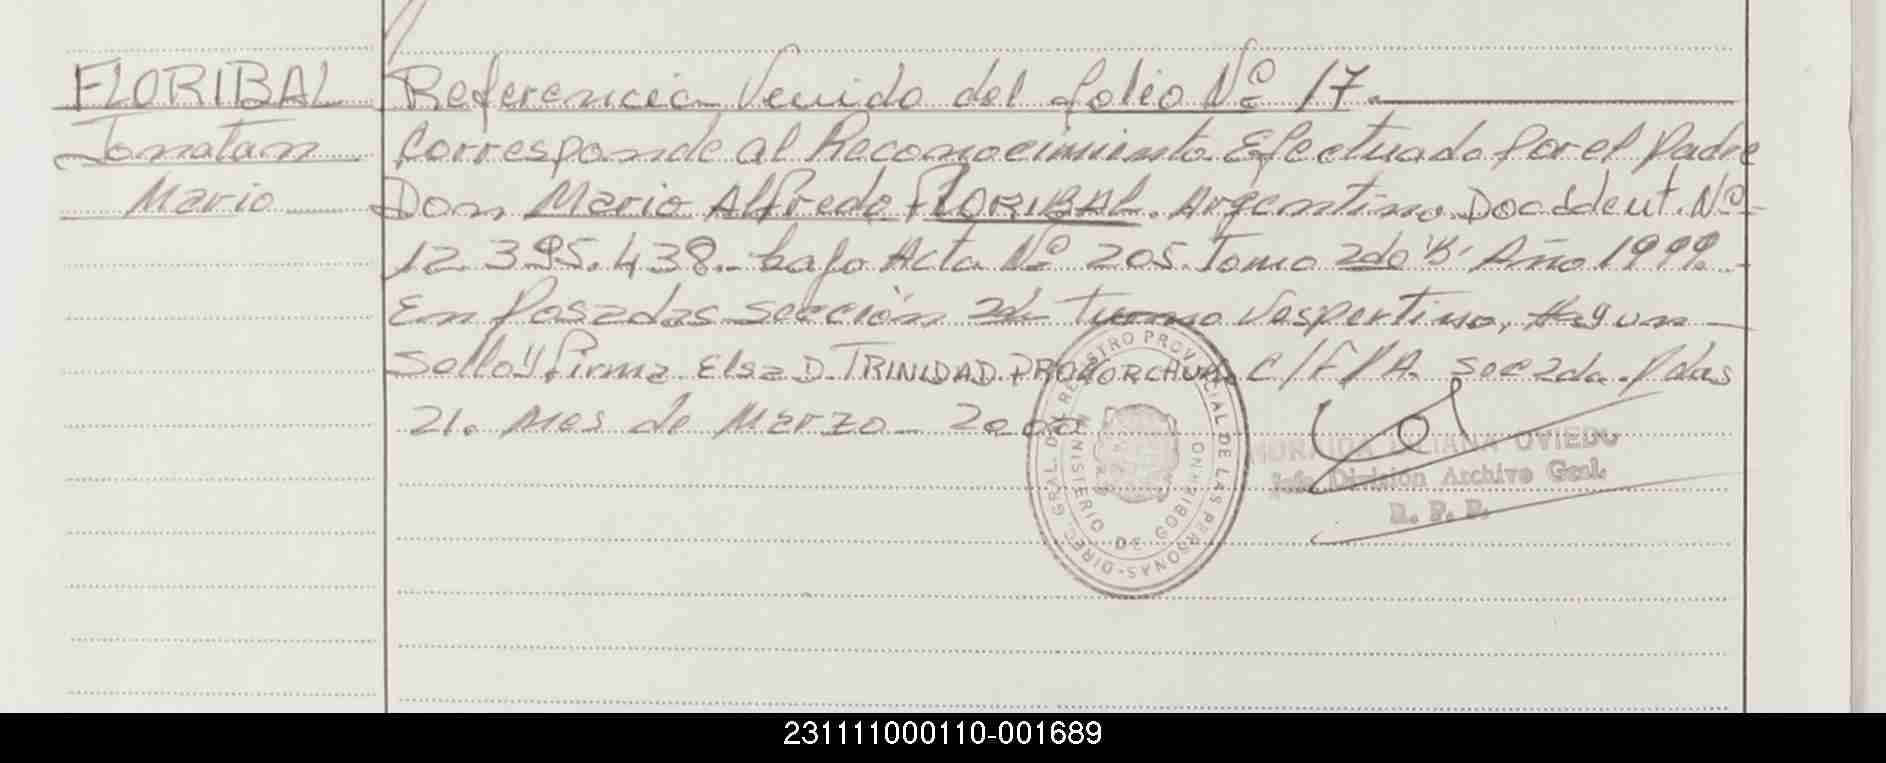 FLORIBAL
Jonatan
Mario
Referencia Venido del folio Nº 17.
Corresponde al Reconocimiento Efectuado por el Padre
Don Mario Alfredo FLORIBAL. Argentino. Doc de Ident. Nº
12.395.438.- bajo Acta Nº 205. Tomo 2do "B" Año 1999.-
En Posadas sección 2da turno Vespertino, Hay un
Sello y firma Elsa D. TRINIDAD C/F/A. Sec 2da. Pdas
21. Mes de Marzo - 2000
DIREC. GRAL. DEL REGISTRO PROVINCIAL DE LAS PERSONAS
GOBIERNO DE MISIONES
LILIANA OVIEDO
Jefe División Archivo Gral.
R. P. P.
231111000110-001689